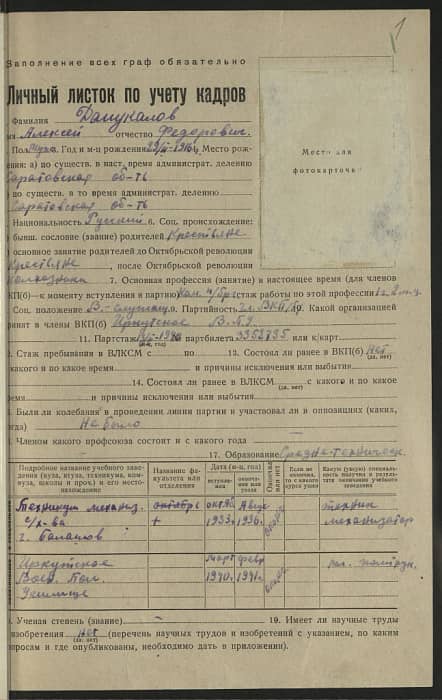 1
Заполнение всех граф обязательно
Личный листок по учету кадров
Фамилия Данукалов
мя Алексей отчество Федорович.
Пол муж. Год и м-ц рождения 29/II-1916г. Место рож-
ения: а) по существ. в наст. время администрат. делению
Саратовская об-ть
) по существ. в то время администрат. делению
Саратовская об-ть
Национальность Русский. Соц. происхождение:
) бывш. сословие (звание) родителей Крестьяне
) основное занятие родителей до Октябрьской революции
Крестьяне, после Октябрьской революции
Колхозники 7. Основная профессия (занятие) в настоящее время (для членов
КП(б)—к моменту вступления в партию) стаж работы по этой профессии
Соц. положение В.-служащ. 9. Партийность чл. ВКП/б/. Какой организацией
ринят в члены ВКП(б) Иркутское
11. Партстаж (м-ц, год) партбилета 3352735 или к/карт.
2. Стаж пребывания в ВЛКСМ с — по — 13. Состоял ли ранее в ВКП(б) Нет (да, нет)
какого и по какое время и причины исключения или выбытия
14. Состоял ли ранее в ВЛКСМ (да, нет) с какого и по какое
ремя и причины исключения или выбытия
Были ли колебания в проведении линии партии и участвовал ли в оппозициях (каких,
гда) Не было
. Членом какого профсоюза состоит и с какого года —
17. Образование Средне-техническ.
Место для
фотокарточки
Подробное название учебного заве-
дения (вуза, втуза, техникума, ком-
вуза, школы и проч.) и его место-
нахождение
Название фа-
культета или
отделения
Дата (м-ц, год)
вступле-
ния
оконча-
ния или
ухода
Окончил
или нет
Если не
окончил,
то с какого
курса ушел
Какую (узкую) специаль-
ность получил в резуль-
тате окончания учебного
заведения
Техникум механиз.
с/х-ва
г. Балашов
октябрь
октяб.
1933.
1936г.
техник
механизатор
Иркутское
Воен. Пол.
Училище
март
1940.
февр
1941г.
пол. политрук.
. Ученая степень (звание) — 19. Имеет ли научные труды
изобретения Нет (да, нет) (перечень научных трудов и изобретений с указанием, по каким
опросам и где опубликованы, необходимо дать в приложении).